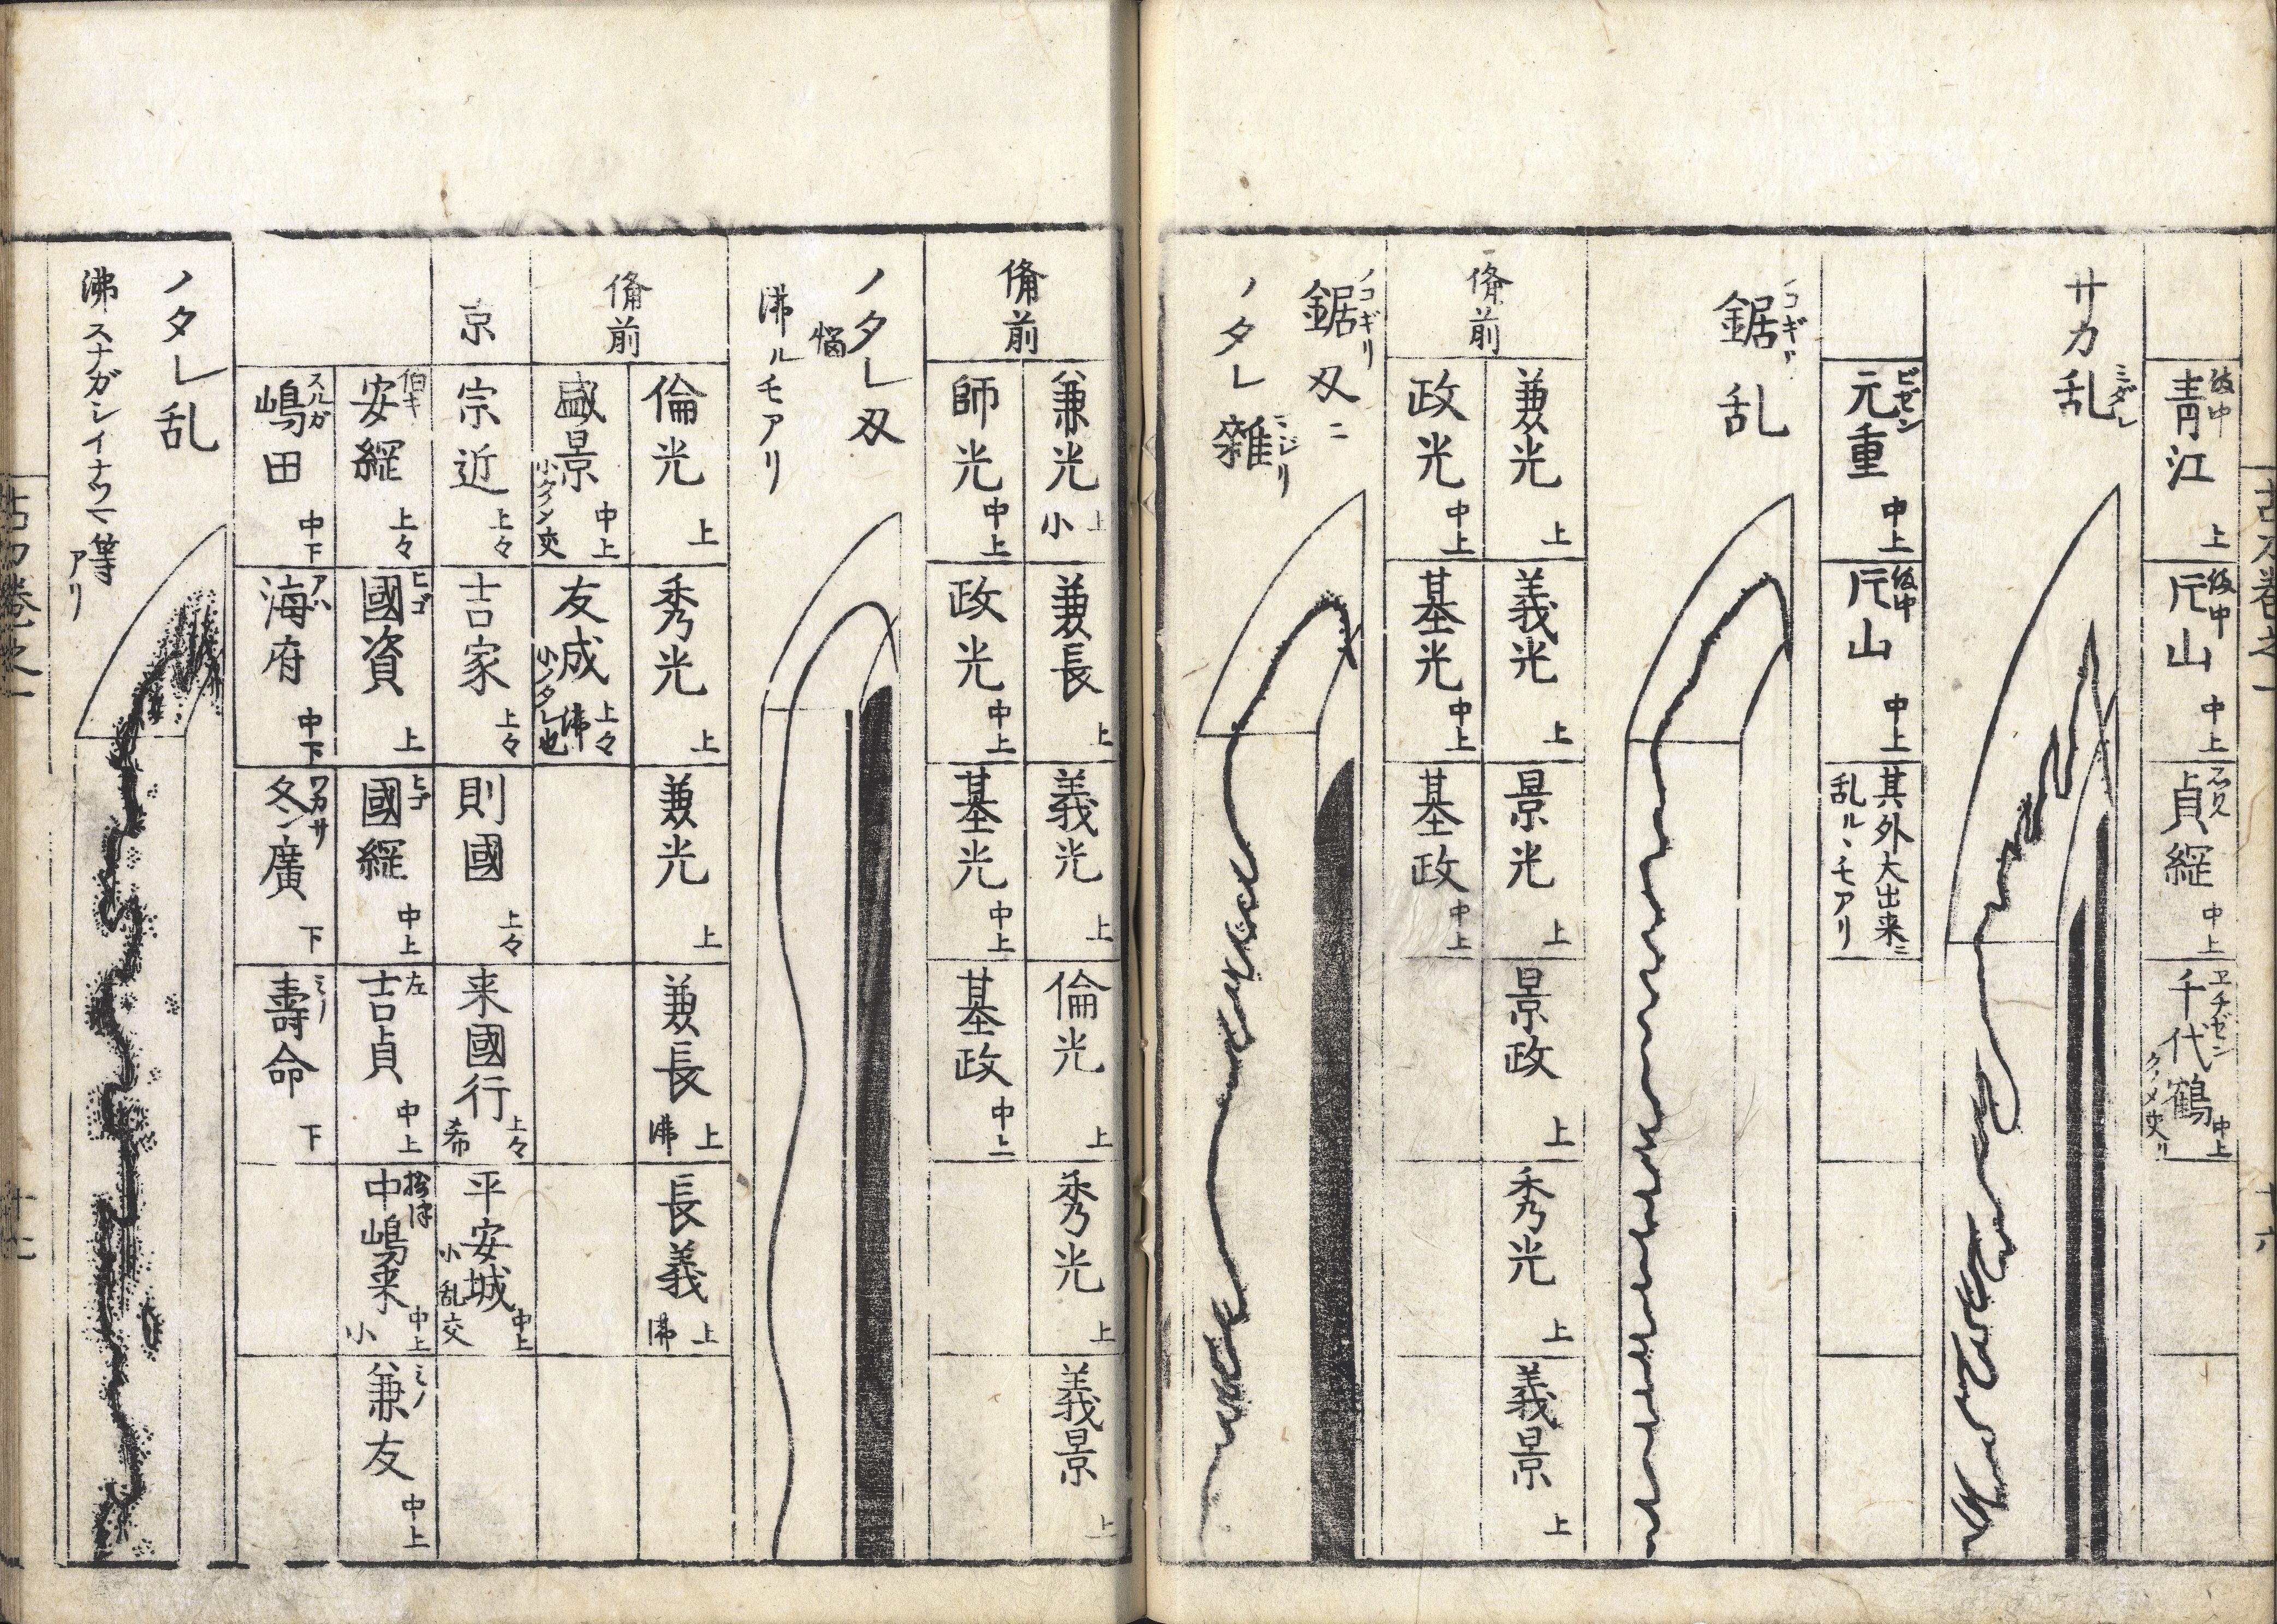 古刀巻之一
青江 備中 上
片山 備中 中上
貞綱 石州 中上
千代鶴 ヱチゼン 中上
サカ乱 ミダレ
元重 ビゼン 中上
片山 備中 中上
其外大出来ニ
乱ルヽモアリ
鋸乱 ノコギリ
備前
兼光 上
義光 上
景光 上
景政 上
秀光 上
義景 上
政光 中上
基光 中上
基政 中上
鋸刄ニ ノコギリ
ノタレ雑 マジリ
備前
兼光 上 小
兼長 上
義光 上
倫光 上
秀光 上
義景 上
師光 中上
政光 中上
基光 中上
基政 中上
ノタレ刄
沸ルモアリ
備前
倫光 上
秀光 上
兼光 上
兼長 上 沸
長義 上 沸
盛景 中上
友成 上々 沸 小ノタレ也
京
宗近 上々
吉家 上々
則國 上々
来國行 上々 希
平安城 中上 小乱交
安綱 伯キ 上々
國資 ヒゴ 上
國綱 中上
吉貞 左 中上
中嶋来 摂津 中上 小
兼友 ミノ 中上
嶋田 スルガ 中下
海府 アハ 中下
冬廣 ワカサ 下
壽命 ミノ 下
ノタレ乱
沸スナガシイナヅマ等
アリ
古刀巻之一